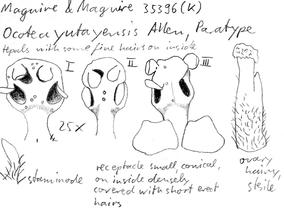 Maguire & Maguire 35396 (K)
Ocotea yutajensis Allen, Paratype
tepals with some fine hairs on inside
I II III
25x
staminode
receptacle small, conical,
on inside densely
covered with short erect
hairs
ovary
hairy,
sterile